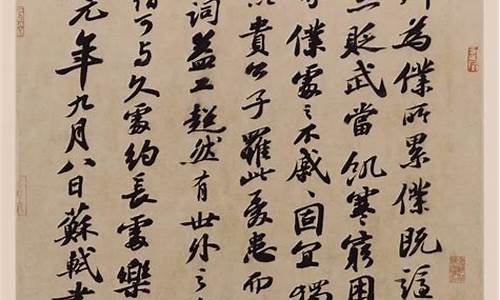 為僕所累僕既謫
亦貶武當飢寒窮困
僕處之不戚戚固宜獨
以貴公子罹此憂患而
詞益工超然有世外之
謂可與久處約長處樂
元年九月八日蘇軾書